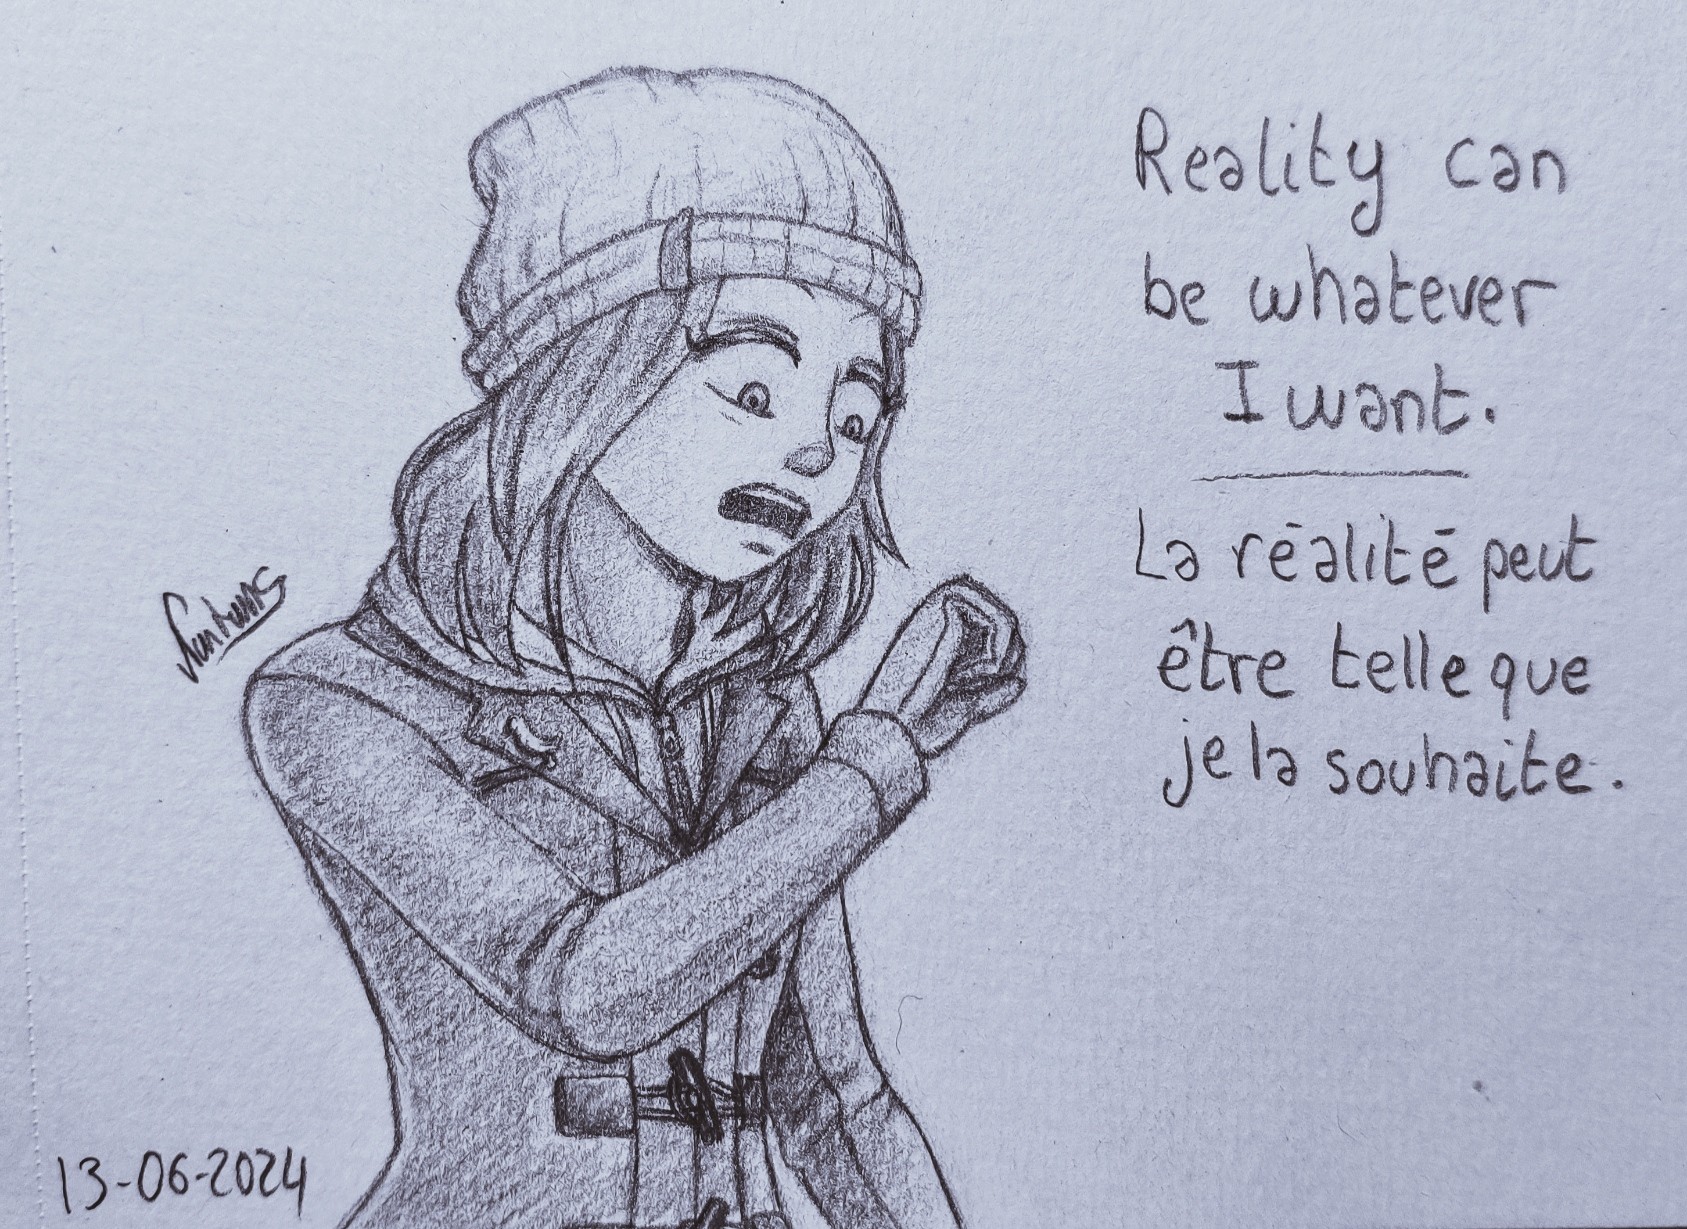 Reality can
be whatever
I want.
La réalité peut
être telle que
je la souhaite.
13-06-2024